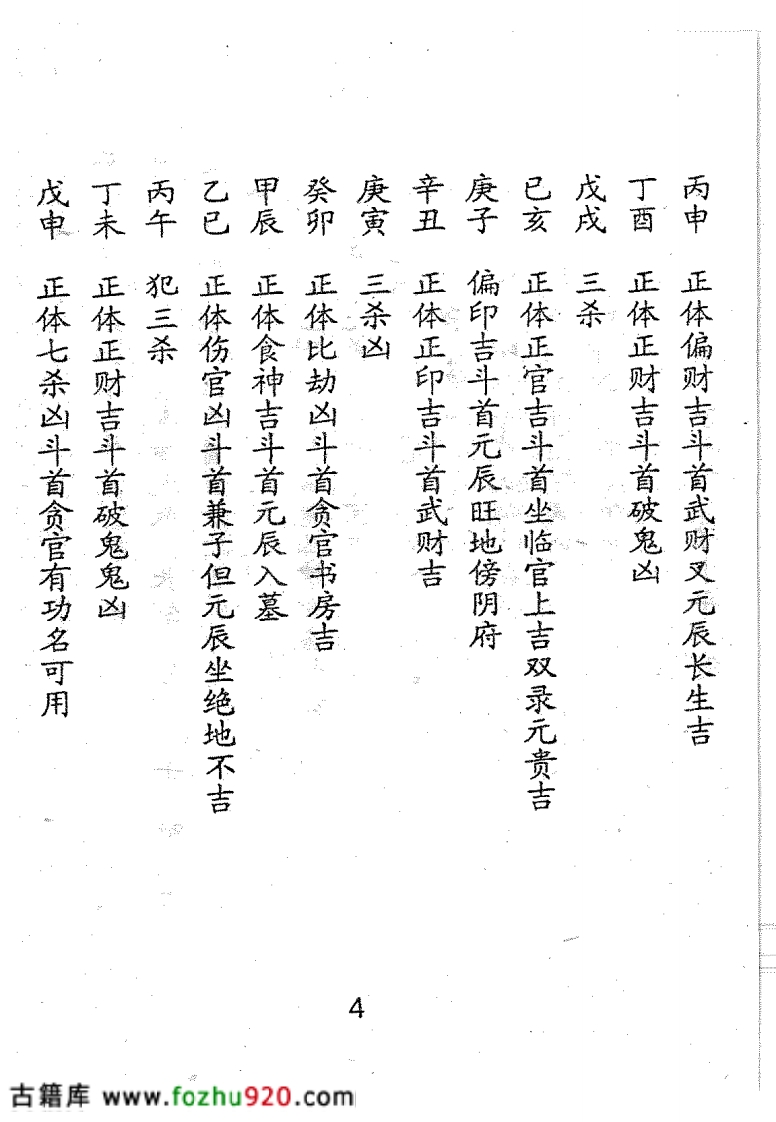 丙申 正体偏财吉斗首武财叉元辰长生吉
丁酉 正体正财吉斗首破鬼凶
戊戌 三杀
己亥 正体正官吉斗首坐临官上吉双录元贵吉
庚子 偏印吉斗首元辰旺地傍阴府
辛丑 正体正印吉斗首武财吉
庚寅 三杀凶
癸卯 正体比劫凶斗首贪官书房吉
甲辰 正体食神吉斗首元辰入墓
乙巳 正体伤官凶斗首兼子但元辰坐绝地不吉
丙午 犯三杀
丁未 正体正财吉斗首破鬼鬼凶
戊申 正体七杀凶斗首贪官有功名可用
4
古籍库 www.fozhu920.com